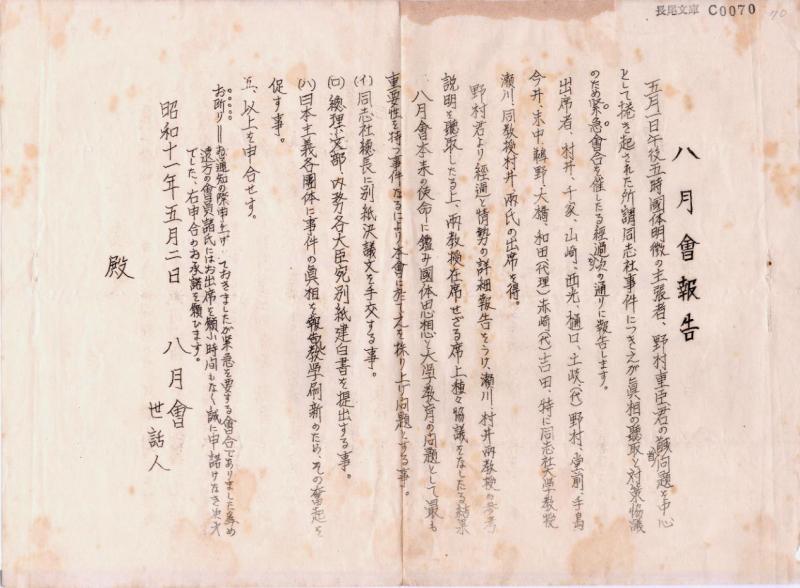 長尾文庫 C0070
70
八月會報告
五月一日午後五時國体明徴の主張者、野村重臣君の諭旨問題を中心
として捲き起された所謂同志社事件につきえが眞相の聽取と対策協議
のため緊急會合を催したる経過次の通りに報告します。
出席者、村井、千家、山崎、西光、樋口、土岐(代)野村、堂前、手島
今井、末中、鵜野、大橋、和田(代理)赤崎(代)吉田、特に同志社大學教授
瀬川、同教授村井、兩氏の出席を得。
野村君より経過と情勢の詳細報告をうけ、瀬川、村井兩教授の参考
説明を聽取したる上、兩教授在席せざる席上種々協議をなしたる結果
八月會本来の使命に鑑み國体思想と大學教育の問題として最も
重要性を持つ事件なるにより本會に於て之を採り上げ問題とする事。
(イ)同志社總長に別紙決議文を手交する事。
(ロ)總理、文部、内務各大臣宛別紙建白書を提出する事。
(ハ)日本主義各團体に事件の眞相を報告教學刷新のため、その奮起を
促す事。
以上を申合せす。
お断り――お通知の際申上げておきましたが緊急を要する會合でありました為め
遠方の會員諸氏にはお出席を願ふ時間もなく、誠に申譯けなき次第
でした、右申合のお承諾を願ひます。
昭和十一年五月二日
八月會
世話人
殿